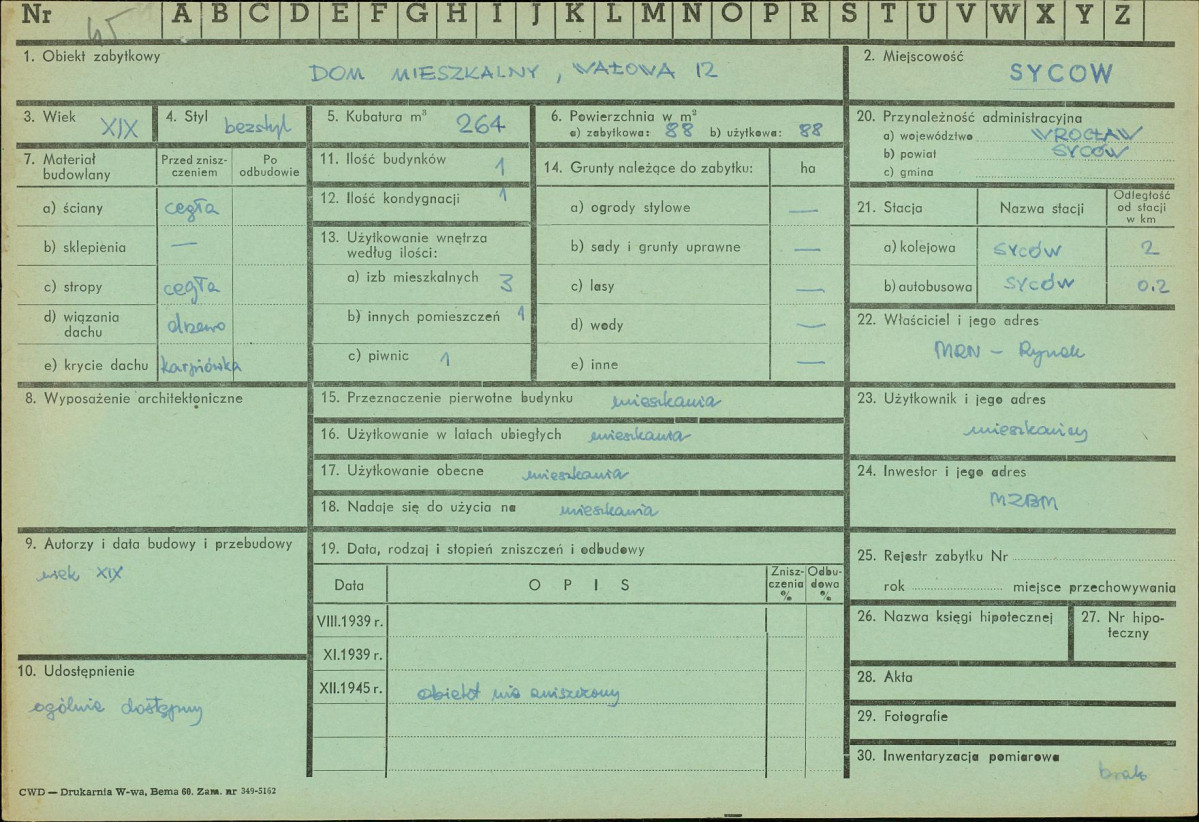 Nr 45 A B C D E F G H I J K L M N O P R S T U V W X Y Z
1. Obiekt zabytkowy
DOM MIESZKALNY, WAŁOWA 12
2. Miejscowość
SYCOW
3. Wiek XIX
4. Styl bezstyl
5. Kubatura m³ 264
6. Powierzchnia w m²
a) zabytkowa: 88 b) użytkowa: 88
20. Przynależność administracyjna
a) województwo WROCŁAW
b) powiat SYCÓW
c) gmina
7. Materiał budowlany
Przed zniszczeniem
Po odbudowie
a) ściany cegła
b) sklepienia —
c) stropy cegła
d) wiązania dachu drzewo
e) krycie dachu karpiówka
11. Ilość budynków 1
12. Ilość kondygnacji 1
13. Użytkowanie wnętrza
według ilości:
a) izb mieszkalnych 3
b) innych pomieszczeń 1
c) piwnic 1
14. Grunty należące do zabytku: ha
a) ogrody stylowe —
b) sady i grunty uprawne —
c) lasy —
d) wody —
e) inne —
21. Stacja
Nazwa stacji
Odległość
od stacji
w km
a) kolejowa SYCÓW 2
b) autobusowa SYCÓW 0.2
22. Właściciel i jego adres
MRN – Rynek
8. Wyposażenie architektoniczne
15. Przeznaczenie pierwotne budynku mieszkania
16. Użytkowanie w latach ubiegłych mieszkania
17. Użytkowanie obecne mieszkania
18. Nadaje się do użycia na mieszkania
23. Użytkownik i jego adres
mieszkańcy
24. Inwestor i jego adres
MZBM
9. Autorzy i data budowy i przebudowy
wiek XIX
19. Data, rodzaj i stopień zniszczeń i odbudowy
Data
OPIS
Znisz-
czenia
%
Odbu-
dowa
%
VIII.1939 r.
XI.1939 r.
XII.1945 r. obiekt nie zniszczony
25. Rejestr zabytku Nr
rok miejsce przechowywania
26. Nazwa księgi hipotecznej
27. Nr hipo-
teczny
10. Udostępnienie
ogólnie dostępny
28. Akta
29. Fotografie
30. Inwentaryzacja pomiarowa
brak
CWD — Drukarnia W-wa, Bema 60. Zam. nr 349-5162